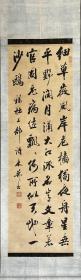 細草微風岸危檣獨夜舟星垂
平野闊月湧大江流名豈文章著
官因老病休飄飄何所似天地一
沙鷗